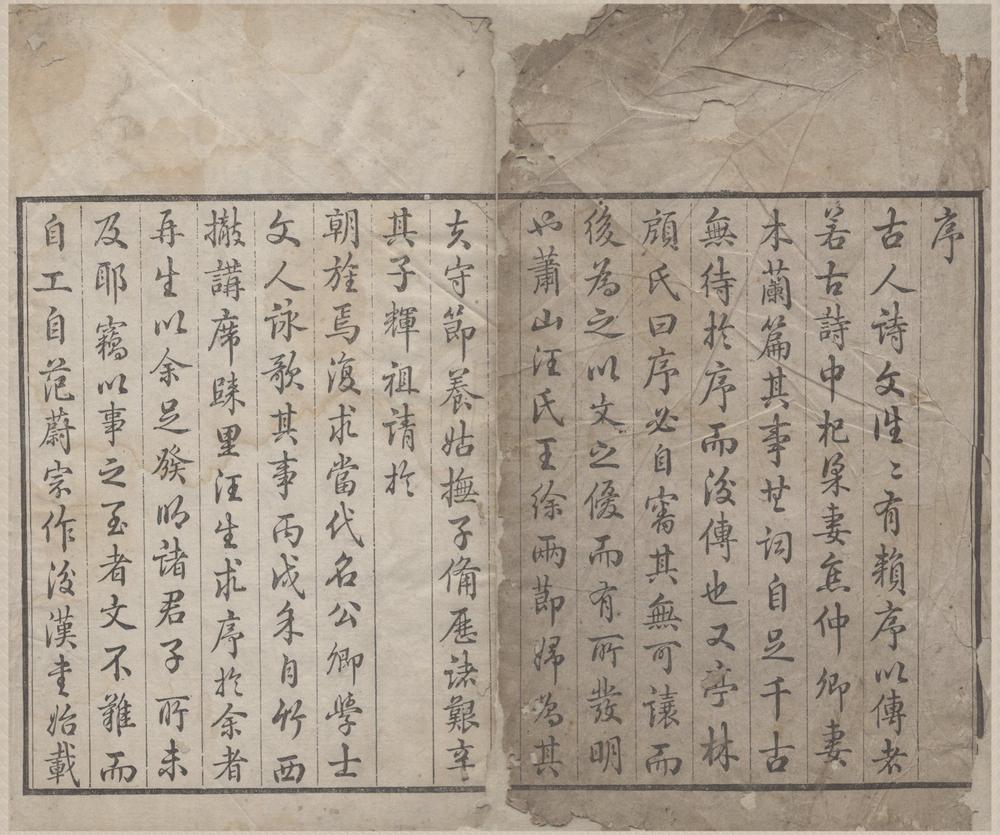 序
古人詩文徃〻有賴序以傳者
若古詩中杞梁妻焦仲卿妻
木蘭篇其事其詞自足千古
無待於序而後傳也又亭林
顧氏曰序必自審其無可讓而
後為之以文之優而有所發明
也蕭山汪氏王徐兩節婦為其
夫守節養姑撫子備歷諸艱辛
其子輝祖請於
朝旌焉復求當代名公卿學士
文人詠歌其事丙戌余自竹西
撤講席歸里汪生求序於余者
再生以余足發明諸君子所未
及耶竊以事之至者文不難而
自工自范蔚宗作後漢書始載